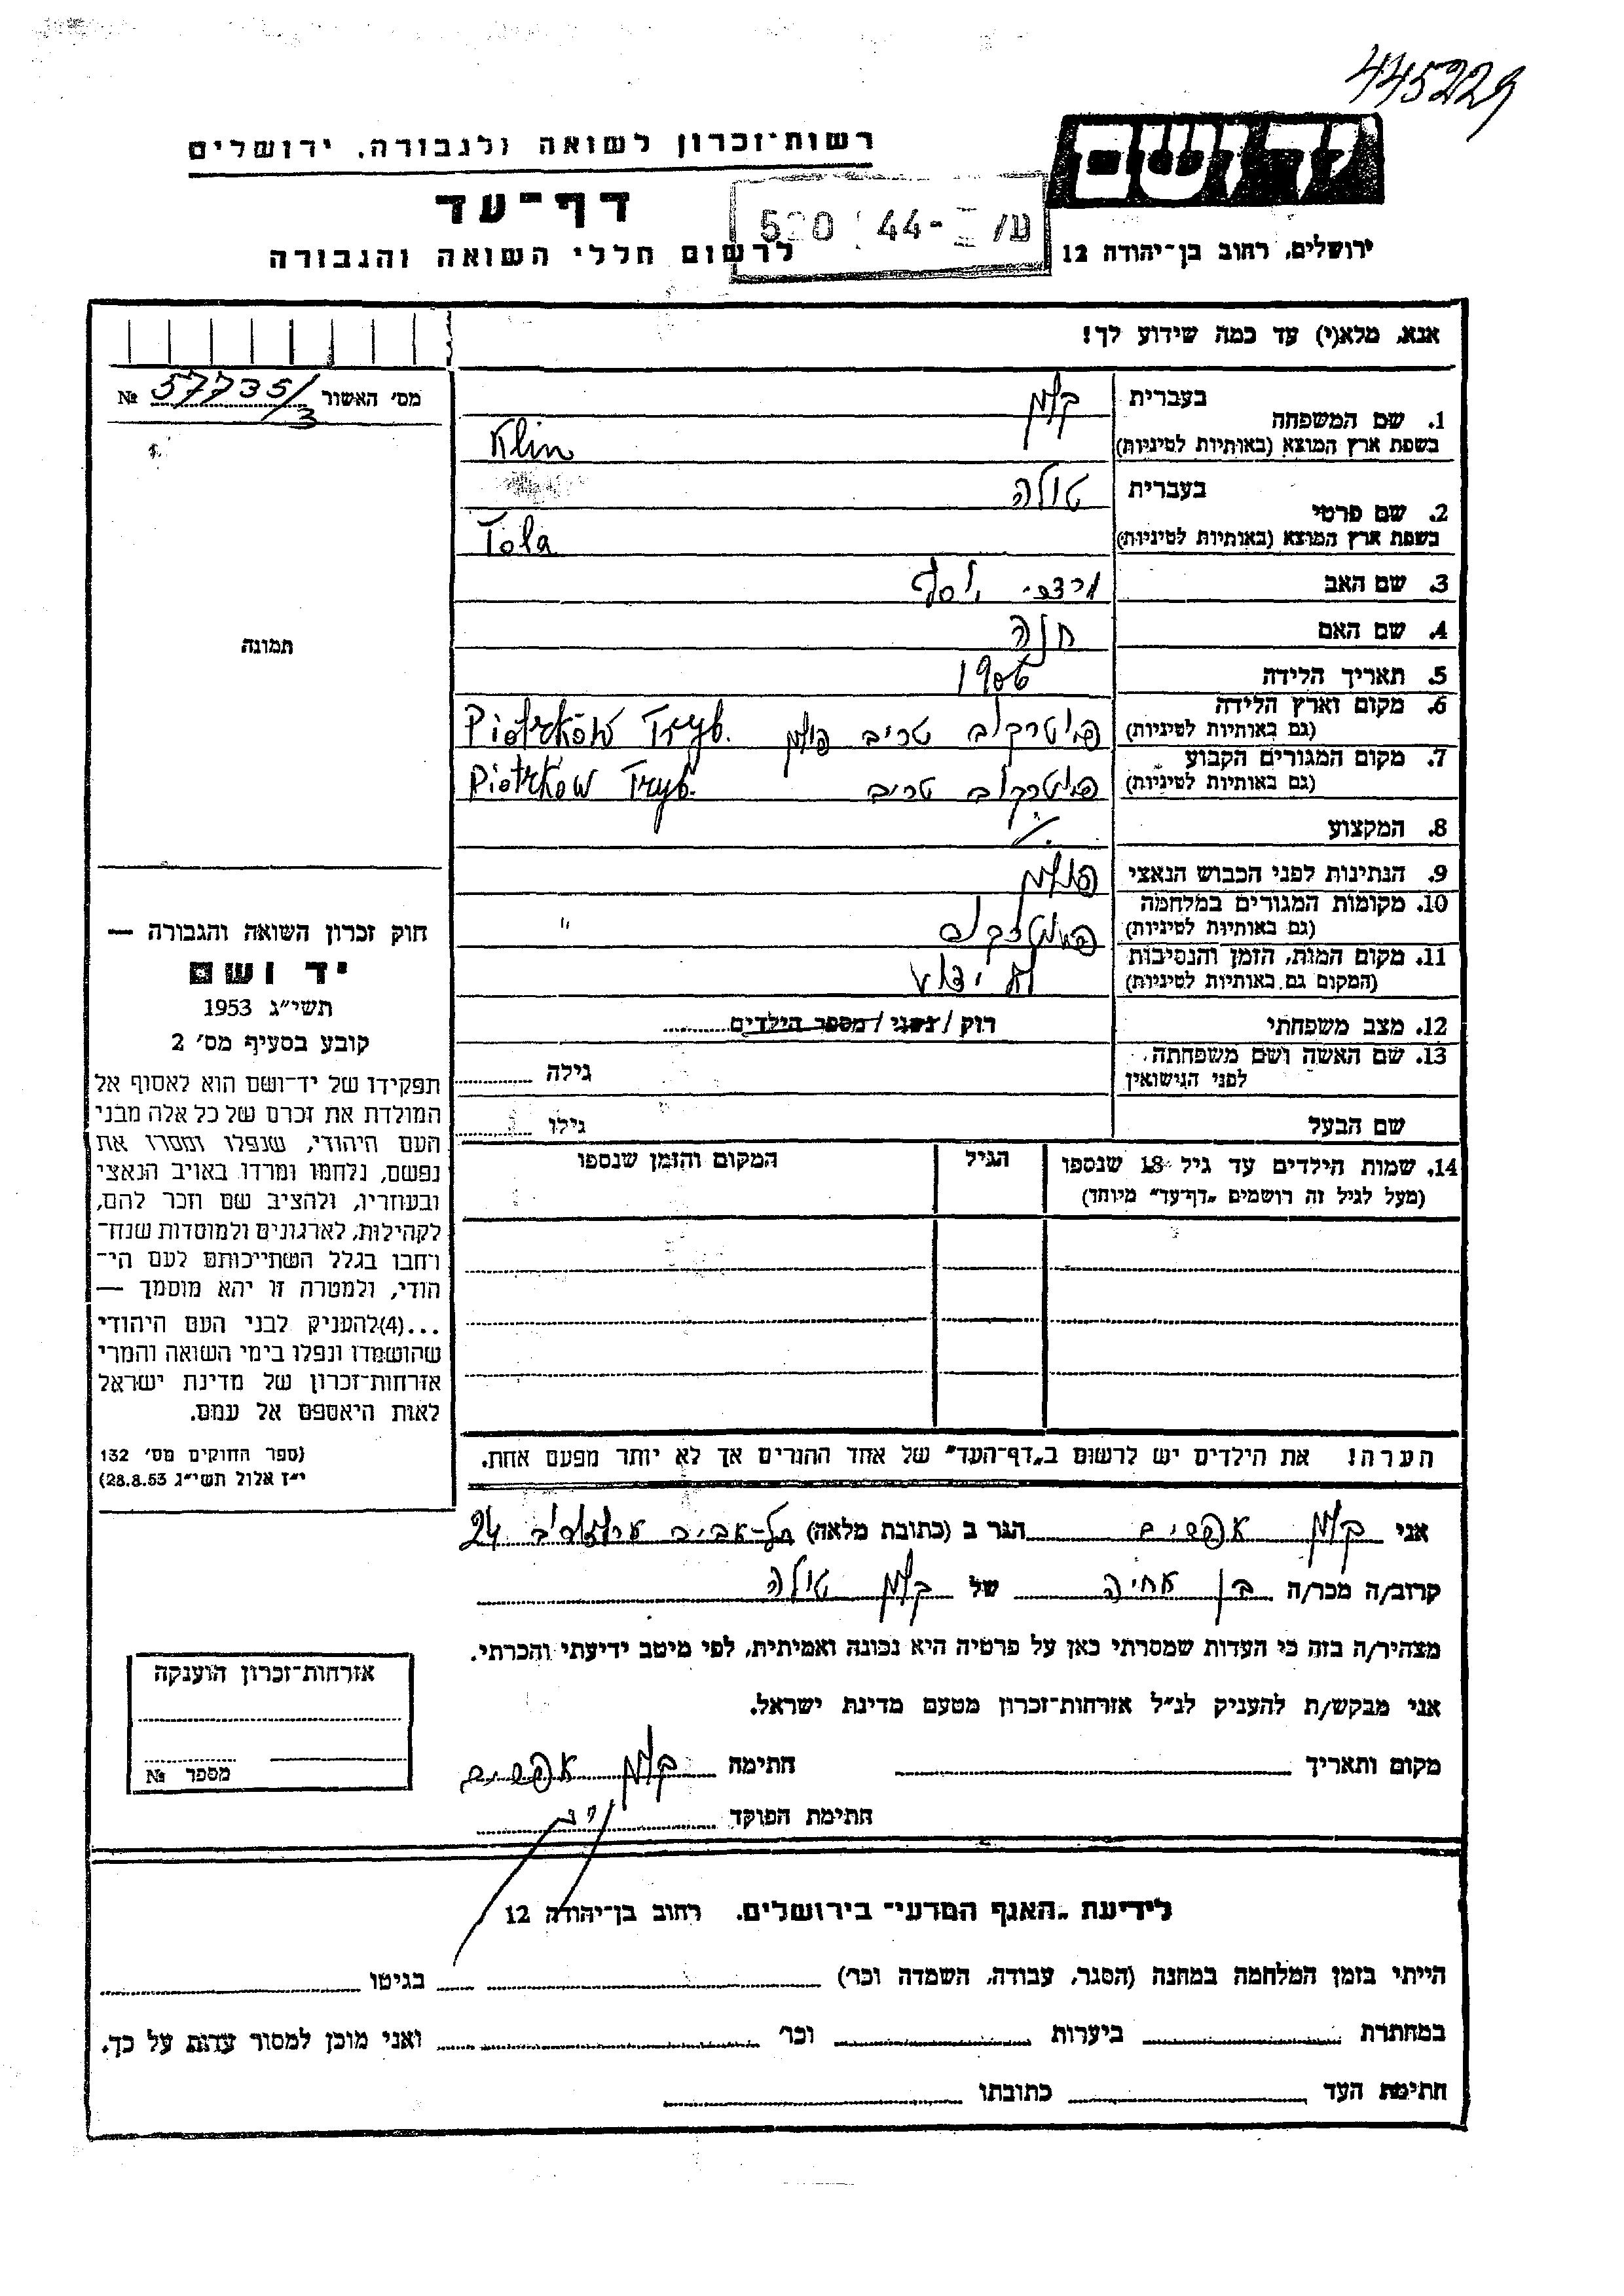 445229
רשות-זכרון לשואה ולגבורה, ירושלים
יד ושם
דף-עד
לרשום חללי השואה והגבורה
ירושלים, רחוב בן-יהודה 12
אנא, מלא(י) עד כמה שידוע לך!
מס׳ האשור 57735/3 №
1. שם המשפחה
בעברית קלין
בשפת ארץ המוצא (באותיות לטיניות) Klin
2. שם פרטי
בעברית טולה
בשפת ארץ המוצא (באותיות לטיניות) Tola
3. שם האב יוסף
4. שם האם חנה
5. תאריך הלידה 1906
6. מקום וארץ הלידה
(גם באותיות לטיניות) פיוטרקוב טריב פולין Piotrków Tryb.
7. מקום המגורים הקבוע
(גם באותיות לטיניות) פיוטרקוב טריב Piotrków Tryb.
8. המקצוע
9. הנתינות לפני הכבוש הנאצי פולין
10. מקומות המגורים במלחמה
(גם באותיות לטיניות) פיוטרקוב "
11. מקום המות, הזמן והנסיבות
(המקום גם באותיות לטיניות) לא ידוע
12. מצב משפחתי רוק / נשוי / מספר הילדים
13. שם האשה ושם משפחתה
לפני הנישואין גילה
שם הבעל גילו
14. שמות הילדים עד גיל 18 שנספו הגיל המקום והזמן שנספו
(מעל לגיל זה רושמים „דף-עד״ מיוחד)
הערה! את הילדים יש לרשום ב„דף-העד״ של אחד ההורים אך לא יותר מפעם אחת.
תמונה
חוק זכרון השואה והגבורה —
יד ושם
תשי״ג 1953
קובע בסעיף מס׳ 2
תפקידו של יד-ושם הוא לאסוף אל
המולדת את זכרם של כל אלה מבני
העם היהודי, שנפלו ומסרו את
נפשם, נלחמו ומרדו באויב הנאצי
ובעוזריו, ולהציב שם וזכר להם,
לקהילות, לארגונים ולמוסדות שנח-
רחבו בגלל השתייכותם לעם הי-
הודי, ולמטרה זו יהא מוסמך —
...(4) להעניק לבני העם היהודי
שהושמדו ונפלו בימי השואה והמרי
אזרחות-זכרון של מדינת ישראל
לאות היאספם אל עמם.
(ספר החוקים מס׳ 132
י״ז אלול תשי״ג 28.8.53)
אני קלין אפרים הגר ב (כתובת מלאה) תל-אביב 24
קרוב/ה מכר/ה בן אחיה של קלין טולה
מצהיר/ה בזה כי העדות שמסרתי כאן על פרטיה היא נכונה ואמיתית, לפי מיטב ידיעתי והכרתי.
אני מבקש/ת להעניק לנ״ל אזרחות-זכרון מטעם מדינת ישראל.
מקום ותאריך חתימה קלין אפרים
חתימת הפוקד
אזרחות-זכרון הוענקה
מספר №
לידיעת „האגף המדעי״ בירושלים. רחוב בן-יהודה 12
הייתי בזמן המלחמה במחנה (הסגר, עבודה, השמדה וכו׳) בגיטו
במחתרת ביערות וכו׳ ואני מוכן למסור עדות על כך.
חתימת העד כתובתו